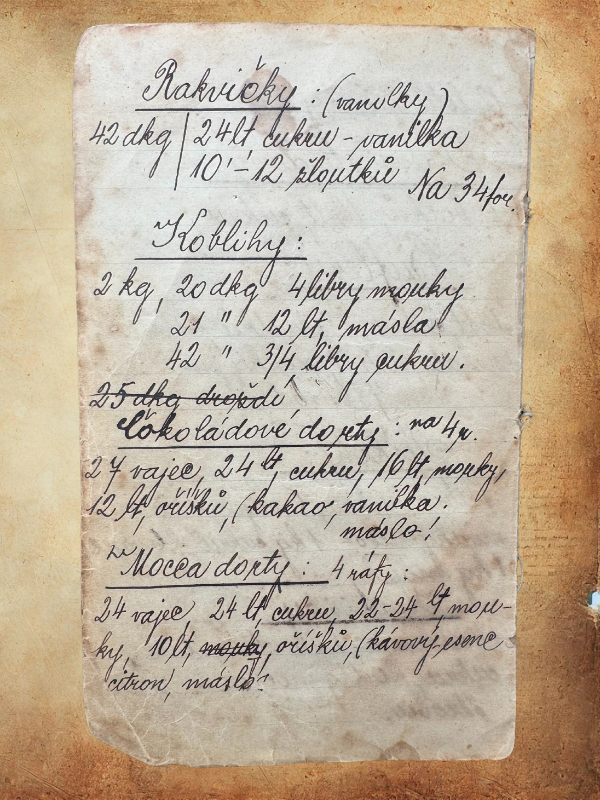 Rakvičky : (vanilky)
42 dkg | 24 lt, cukru - vanilka
10 - 12 žloutků Na 34 for.
Koblihy :
2 kg, 20 dkg 4 libry mouky
21 " 12 lt, másla
42 " 3/4 libry cukru.
25 dkg droždí
Čokoládové dorty : na 4 r.
27 vajec, 24 lt, cukru, 16 lt, mouky,
12 lt, oříšků, (kakao, vanilka.
máslo!
Mocca dorty : 4 ráfy :
24 vajec, 24 lt, cukru, 22-24 lt mou-
ky, 10 lt, mouky, oříšků, (kávový esenc
citron, máslo!